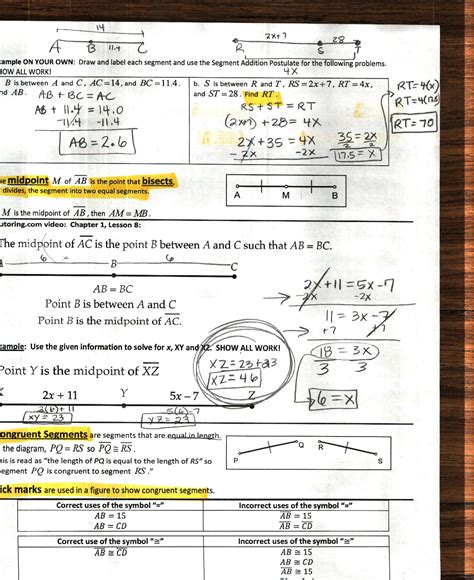 14
A B 11.4 C
2x+7 28
R S T
4X
ample ON YOUR OWN: Draw and label each segment and use the Segment Addition Postulate for the following problems.
HOW ALL WORK!
B is between A and C, AC=14, and BC=11.4.
nd AB.
AB + BC = AC
AB + 11.4 = 14.0
-11.4 -11.4
AB = 2.6
b. S is between R and T, RS=2x+7, RT=4x,
and ST=28. Find RT.
RS + ST = RT
(2x+7) + 28 = 4X
2X + 35 = 4X
-2x -2x
35 = 2X
2 2
17.5 = X
RT=4(x)
RT=4(17.5)
RT= 70
midpoint M of AB is the point that bisects,
divides, the segment into two equal segments.
A M B
M is the midpoint of AB, then AM = MB.
utoring.com video: Chapter 1, Lesson 8:
The midpoint of AC is the point B between A and C such that AB = BC.
6 6
B C
AB = BC
Point B is between A and C
Point B is the midpoint of AC.
2x+11=5x-7
-2x -2x
11 = 3x-7
+7 +7
18 = 3x
3 3
6 = X
ample: Use the given information to solve for x, XY and XZ. SHOW ALL WORK!
Point Y is the midpoint of XZ
XZ=23+23
XZ=46
2x + 11 Y 5x - 7 Z
2(6)+11
XY=23
5(6)-7
YZ=23
ongruent Segments are segments that are equal in length.
the diagram, PQ = RS so PQ ≅ RS.
is is read as "the length of PQ is equal to the length of RS" so
egment PQ is congruent to segment RS."
P Q R S
ick marks are used in a figure to show congruent segments.
Correct uses of the symbol "="
AB = 15
AB = CD
Incorrect uses of the symbol "="
AB = 15
AB = CD
Correct use of the symbol "≅"
AB ≅ CD
Incorrect uses of the symbol "≅"
AB ≅ 15
AB ≅ CD
AB ≅ 15